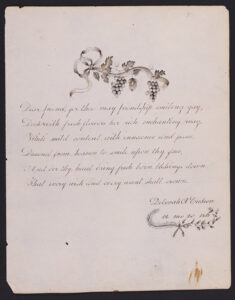 Dear friend, for thee may friendship smiling gay,
Deck with fresh flowers her rich enchanting way,
While mild content with innocence and peace,
Descend from heaven to smile upon thy
And on thy head bring fresh born blessings down
That every wish and every want shall crown.
Deborah A